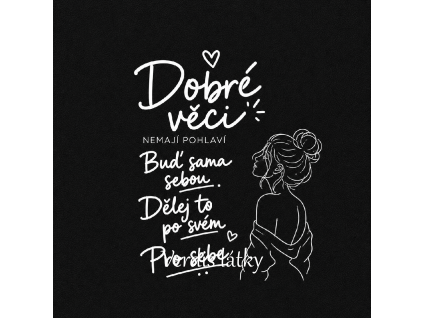 Dobré
věci
NEMAJÍ POHLAVÍ
Buď sama
sebou.
Dělej to
po svém
Pro sebe
látky